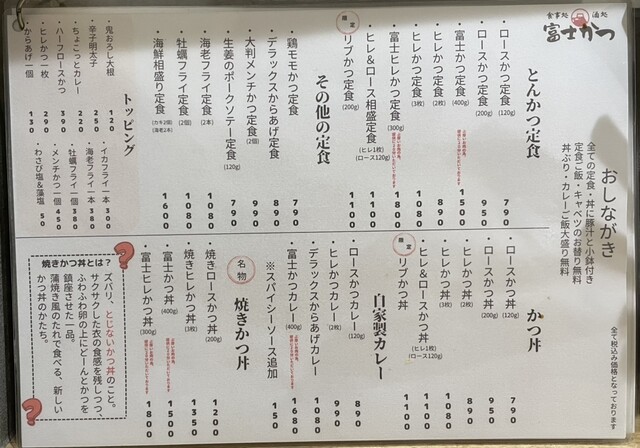 食事処 酒処
富士かつ
おしながき
全ての定食・丼に豚汁と小鉢付き
定食ご飯・キャベツのお替り無料
丼ぶり・カレーご飯大盛り無料
全て税込み価格となっております
とんかつ定食
・ロースかつ定食(120g) 790
・ロースかつ定食(200g) 950
・富士かつ定食(400g) 1500
・ヒレかつ定食(2枚) 890
・ヒレかつ定食(3枚) 1080
・富士ヒレかつ定食(300g) 1800
・ヒレ&ロース相盛定食(ヒレ1枚)(ロース120g) 1100
限定
・リブかつ定食(200g) 1100
その他の定食
・鶏モモかつ定食 790
・デラックスからあげ定食 890
・大判メンチかつ定食(2個) 990
・生姜のポークソテー定食(120g) 790
・海老フライ定食(2本)
・牡蠣フライ定食(2個)
・海鮮相盛り定食(カキ2個)(海老2本) 1600
トッピング
・鬼おろし大根 120
・辛子明太子 250
・ちょこっとカレー 220
・ハーフロースかつ 390
・ヒレかつ一枚 290
・からあげ一個 130
・イカフライ一本 300
・海老フライ一本 380
・牡蠣フライ一個 380
・メンチかつ一個 450
・わさび塩&藻塩 50
かつ丼
・ロースかつ丼(120g) 790
・ロースかつ丼(200g) 950
・ヒレかつ丼(2枚) 890
・ヒレかつ丼(3枚) 1080
・ヒレ&ロースかつ丼(ヒレ1枚)(ロース120g) 1100
限定
・リブかつ丼 1100
自家製カレー
・ロースかつカレー(120g) 890
・ヒレかつカレー(2枚) 990
・デラックスからあげカレー 1080
・富士かつカレー(400g) 1680
※スパイシーソース追加 150
名物
焼きかつ丼
・焼きロースかつ丼(200g) 1200
・焼きヒレかつ丼(3枚) 1350
・富士かつ丼(400g) 1500
・富士ヒレかつ丼(300g) 1800
焼きかつ丼とは?
ズバリ、とじないかつ丼のこと。
サクサクした衣の食感を残しつつ、
ふわふわ卵の上にどーんとかつを
鎮座させた一品。
蒲焼き風のたれで食べる、新しい
かつ丼のかたち。